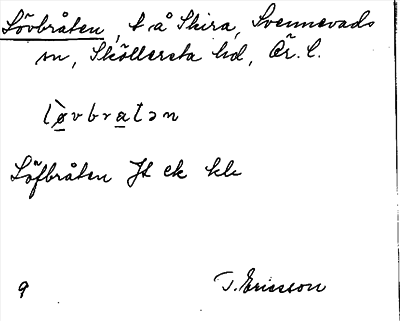 Lövbråten, t å Skira, Svennevads
sn, Sköllersta hd, Ör. l.
lø̀vbratən
Löfbråten Jt ek kb
9
T. Ericsson